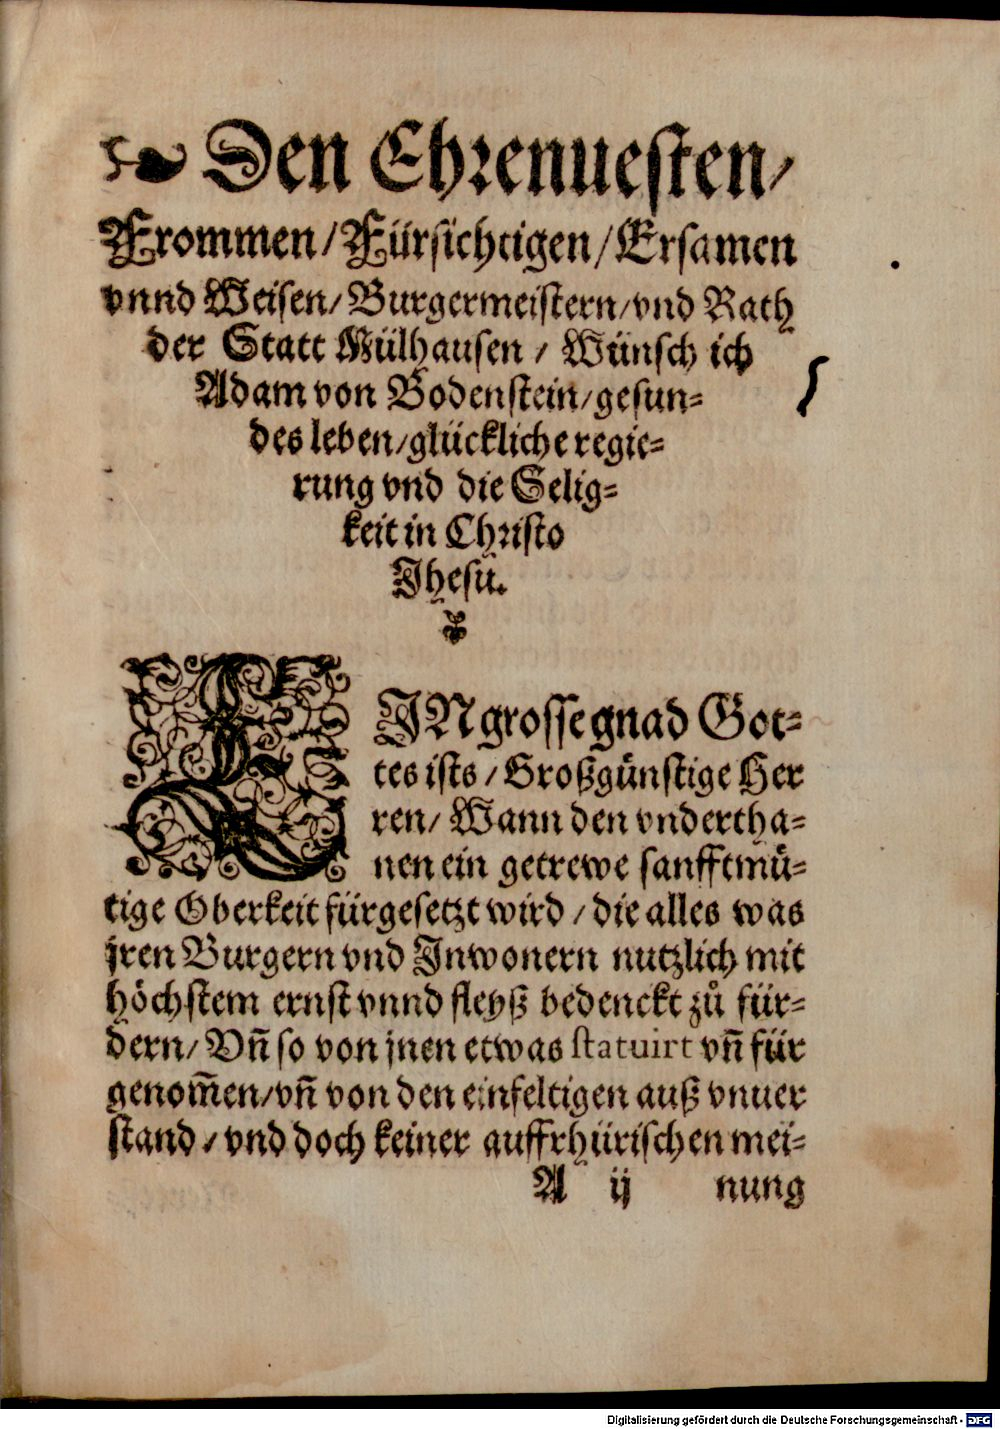 Den Ehrenuesten/
Frommen/Fürsichtigen/Ersamen
vnnd Weisen/Burgermeistern/vnd Rath
der Statt Mülhausen/Wünsch ich
Adam von Bodenstein/gesun-
des leben/glückliche regie-
rung vnd die Selig-
keit in Christo
Jhesu.
EJN grosse gnad Got-
tes ists/Großgünstige Her
ren/Wann den vndertha-
nen ein getrewe sanfftmü-
tige Oberkeit fürgesetzt wird/die alles was
jren Burgern vnd Jnwonern nutzlich mit
höchstem ernst vnnd fleyß bedenckt zů für-
dern/Vñ so von jnen etwas statuirt vñ für
genom̃en/vñ von den einfeltigen auß vnuer
stand/vnd doch keiner auffrhürischen mei-
A ij nung
Digitalisierung gefördert durch die Deutsche Forschungsgemeinschaft - DFG